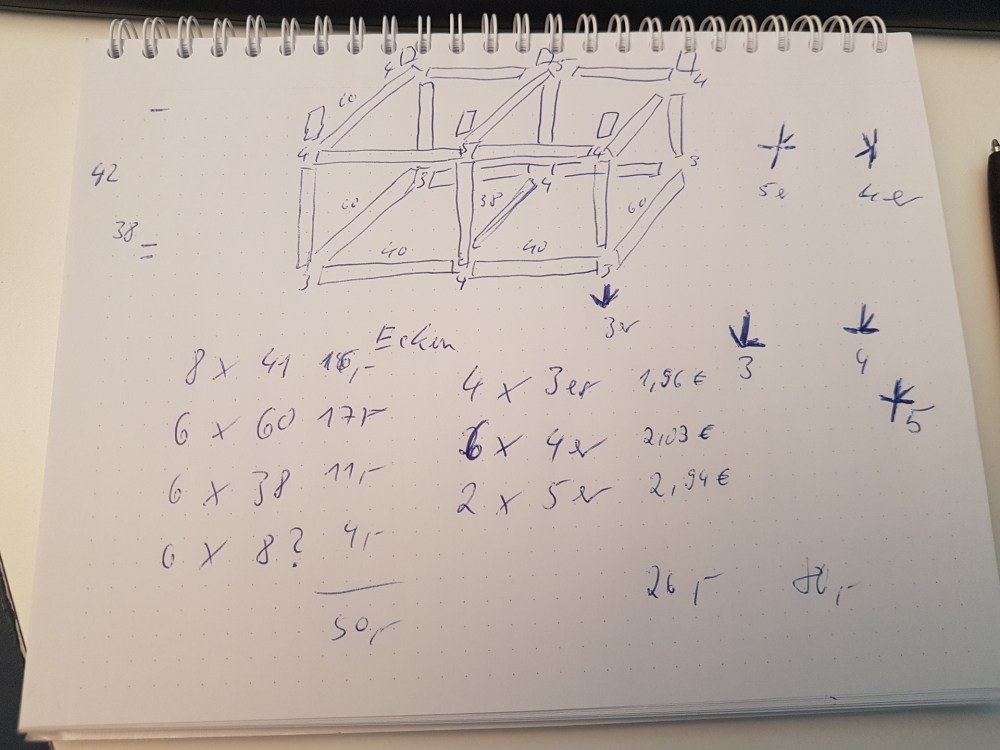 4 5 4
60
4 5 4 3
42
5er 4er
3 4
60 38 60
38
40 40
3 4 3
3er
Ecken
3 4
5
8 x 41 16,-
6 x 60 17,-
6 x 38 11,-
6 x 8? 4,-
50,-
4 x 3er 1,96 €
6 x 4er 2,03 €
2 x 5er 2,94 €
26,-